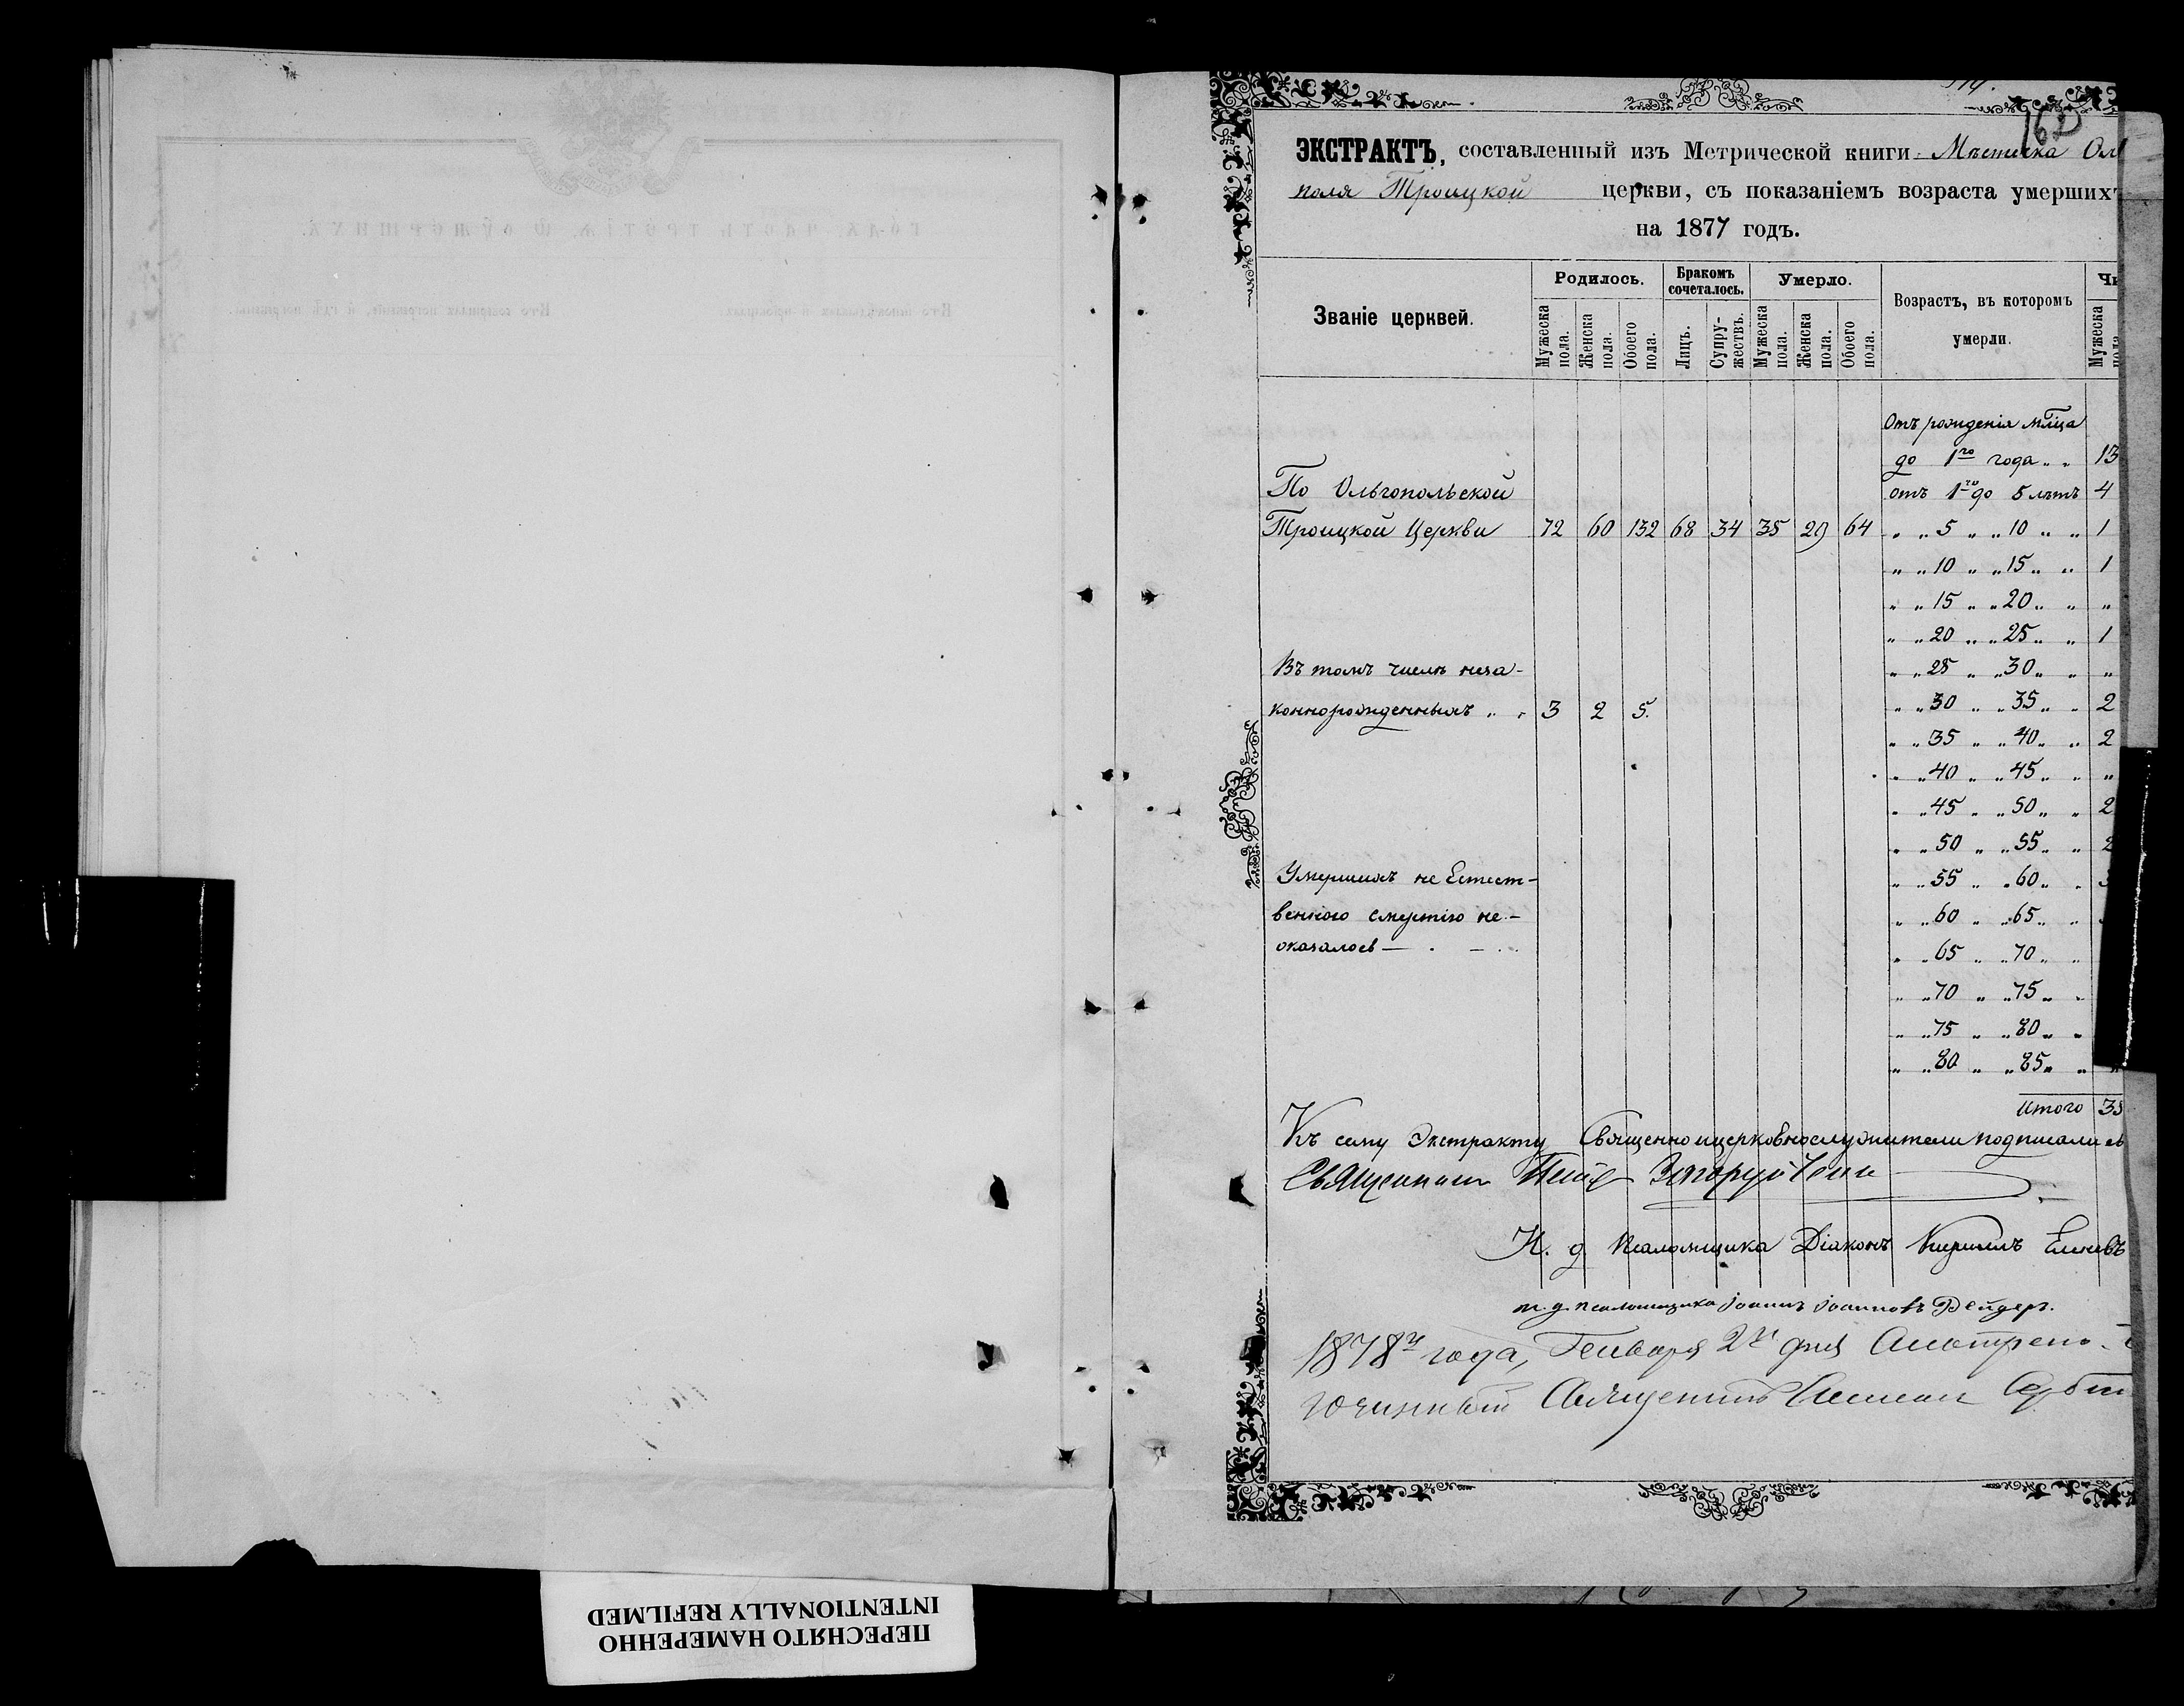 ЭКСТРАКТЪ, составленный изъ Метрической книги Мѣстечка Оль
поля Троицкой церкви, съ показаніемъ возраста умершихъ
на 1877 годъ.
Званіе церквей.
Родилось.
Бракомъ сочеталось.
Умерло.
Возрастъ, въ которомъ умерли.
Мужеска пола.
Женска пола.
Обоего пола.
Лицъ.
Супружествъ.
Мужеска пола.
Женска пола.
Обоего пола.
Мужеска
Отъ рожденія
до 1го года „ „ 13
отъ 1го до 5 лѣтъ 4
По Ольгопольской
Троицкой Церкви 72 60 132 68 34 35 29 64
„ „ 5 „ „ 10 „ „ 1
„ „ 10 „ „ 15 „ „ 1
„ „ 15 „ „ 20 „ „ „
„ „ 20 „ „ 25 „ „ 1
„ „ 25 „ „ 30 „ „ „
„ „ 30 „ „ 35 „ „ 2
„ „ 35 „ „ 40 „ „ 2
„ „ 40 „ „ 45 „ „ „
„ „ 45 „ „ 50 „ „ 2
„ „ 50 „ „ 55 „ „ 2
„ „ 55 „ „ 60 „ „
„ „ 60 „ „ 65 „ „
„ „ 65 „ „ 70 „ „
„ „ 70 „ „ 75 „ „
„ „ 75 „ „ 80 „ „
„ „ 80 „ „ 85 „ „
Въ томъ числѣ неза-
коннорожденныхъ „ „ 3 2 5.
Умершихъ не Естест-
венною смертію не-
оказалось
Итого 35
Къ сему Экстракту Священноицерковнослужители подписались
Священникъ
И. д. Псаломщика Діаконъ Кириллъ
и. д. псаломщика Іоаннъ Іоанновъ
1878 года, Генваря 2 дня
Священникъ
ПЕРЕСНЯТО НАМЕРЕННО
INTENTIONALLY REFILMED